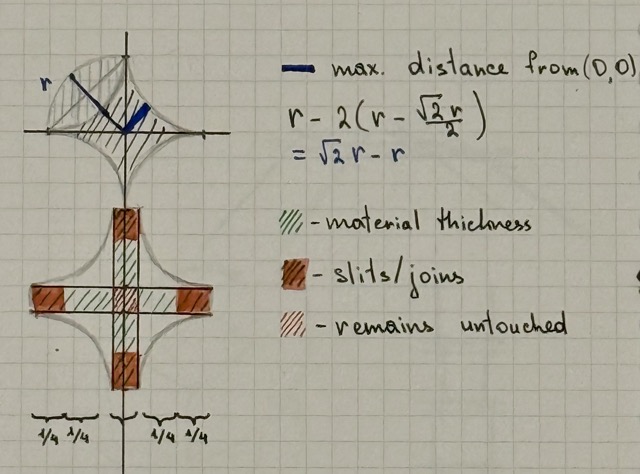 r
max. distance from (0,0)
r - 2(r - √2 r/2)
= √2 r - r
- material thickness
- slits/joins
- remains untouched
1/4 1/4 1/4 1/4